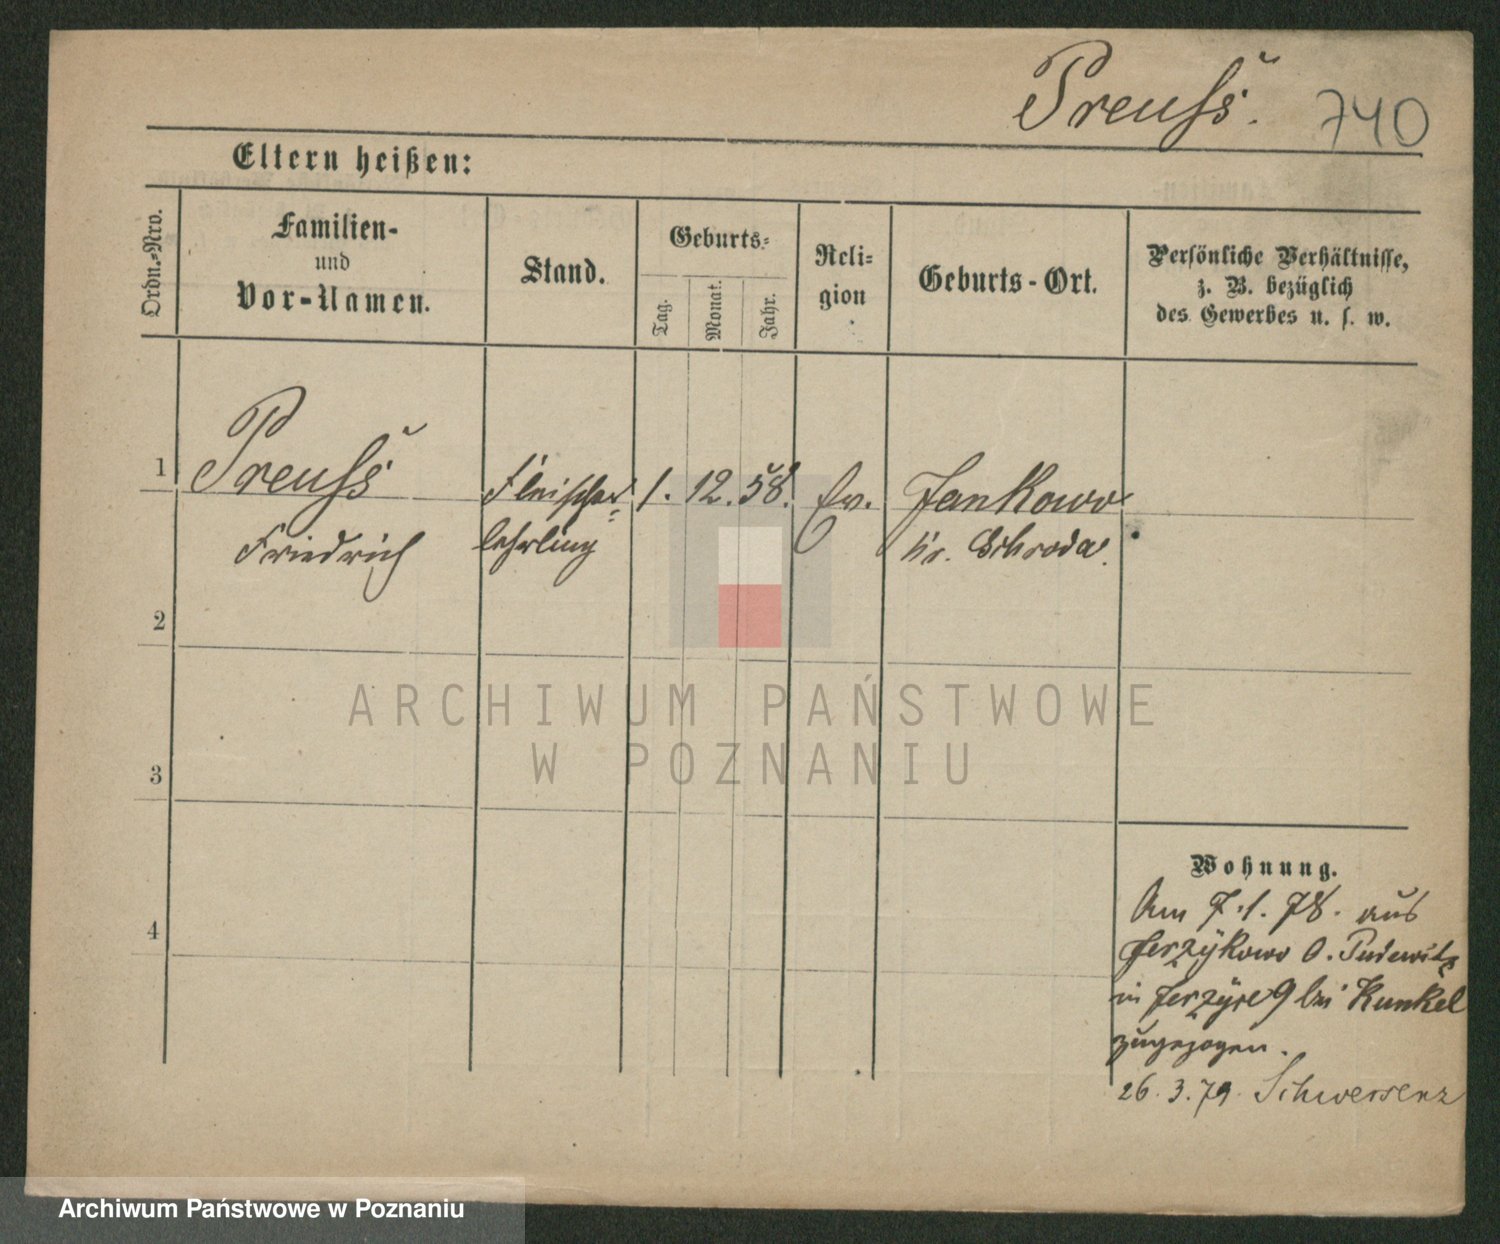 Preuß. 740
Eltern heißen:
Ordn.-Nro.
Familien-
und
Vor-Namen.
Stand.
Geburts-
Tag.
Monat.
Jahr.
Reli-
gion
Geburts-Ort.
Persönliche Verhältnisse,
z. B. bezüglich
des Gewerbes u. s. w.
1 Preuß Fleischer- 1. 12. 58. Ev. Jankowo
Friedrich lehrling Kr. Schroda.
2
3
4
ARCHIWUM PAŃSTWOWE
W POZNANIU
Wohnung.
Am 7.1.78. aus
Jerzykowo b. Pudewitz
in Jerzyce 9 bei Kunkel
zugezogen.
26.3.79. Schwersenz
Archiwum Państwowe w Poznaniu